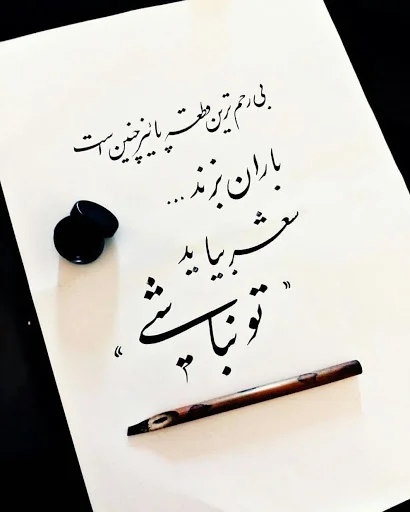 بی رحم ترین قطعه پاییز چنین است
باران بزند ...
شعر بیاید
" تو نباشی "